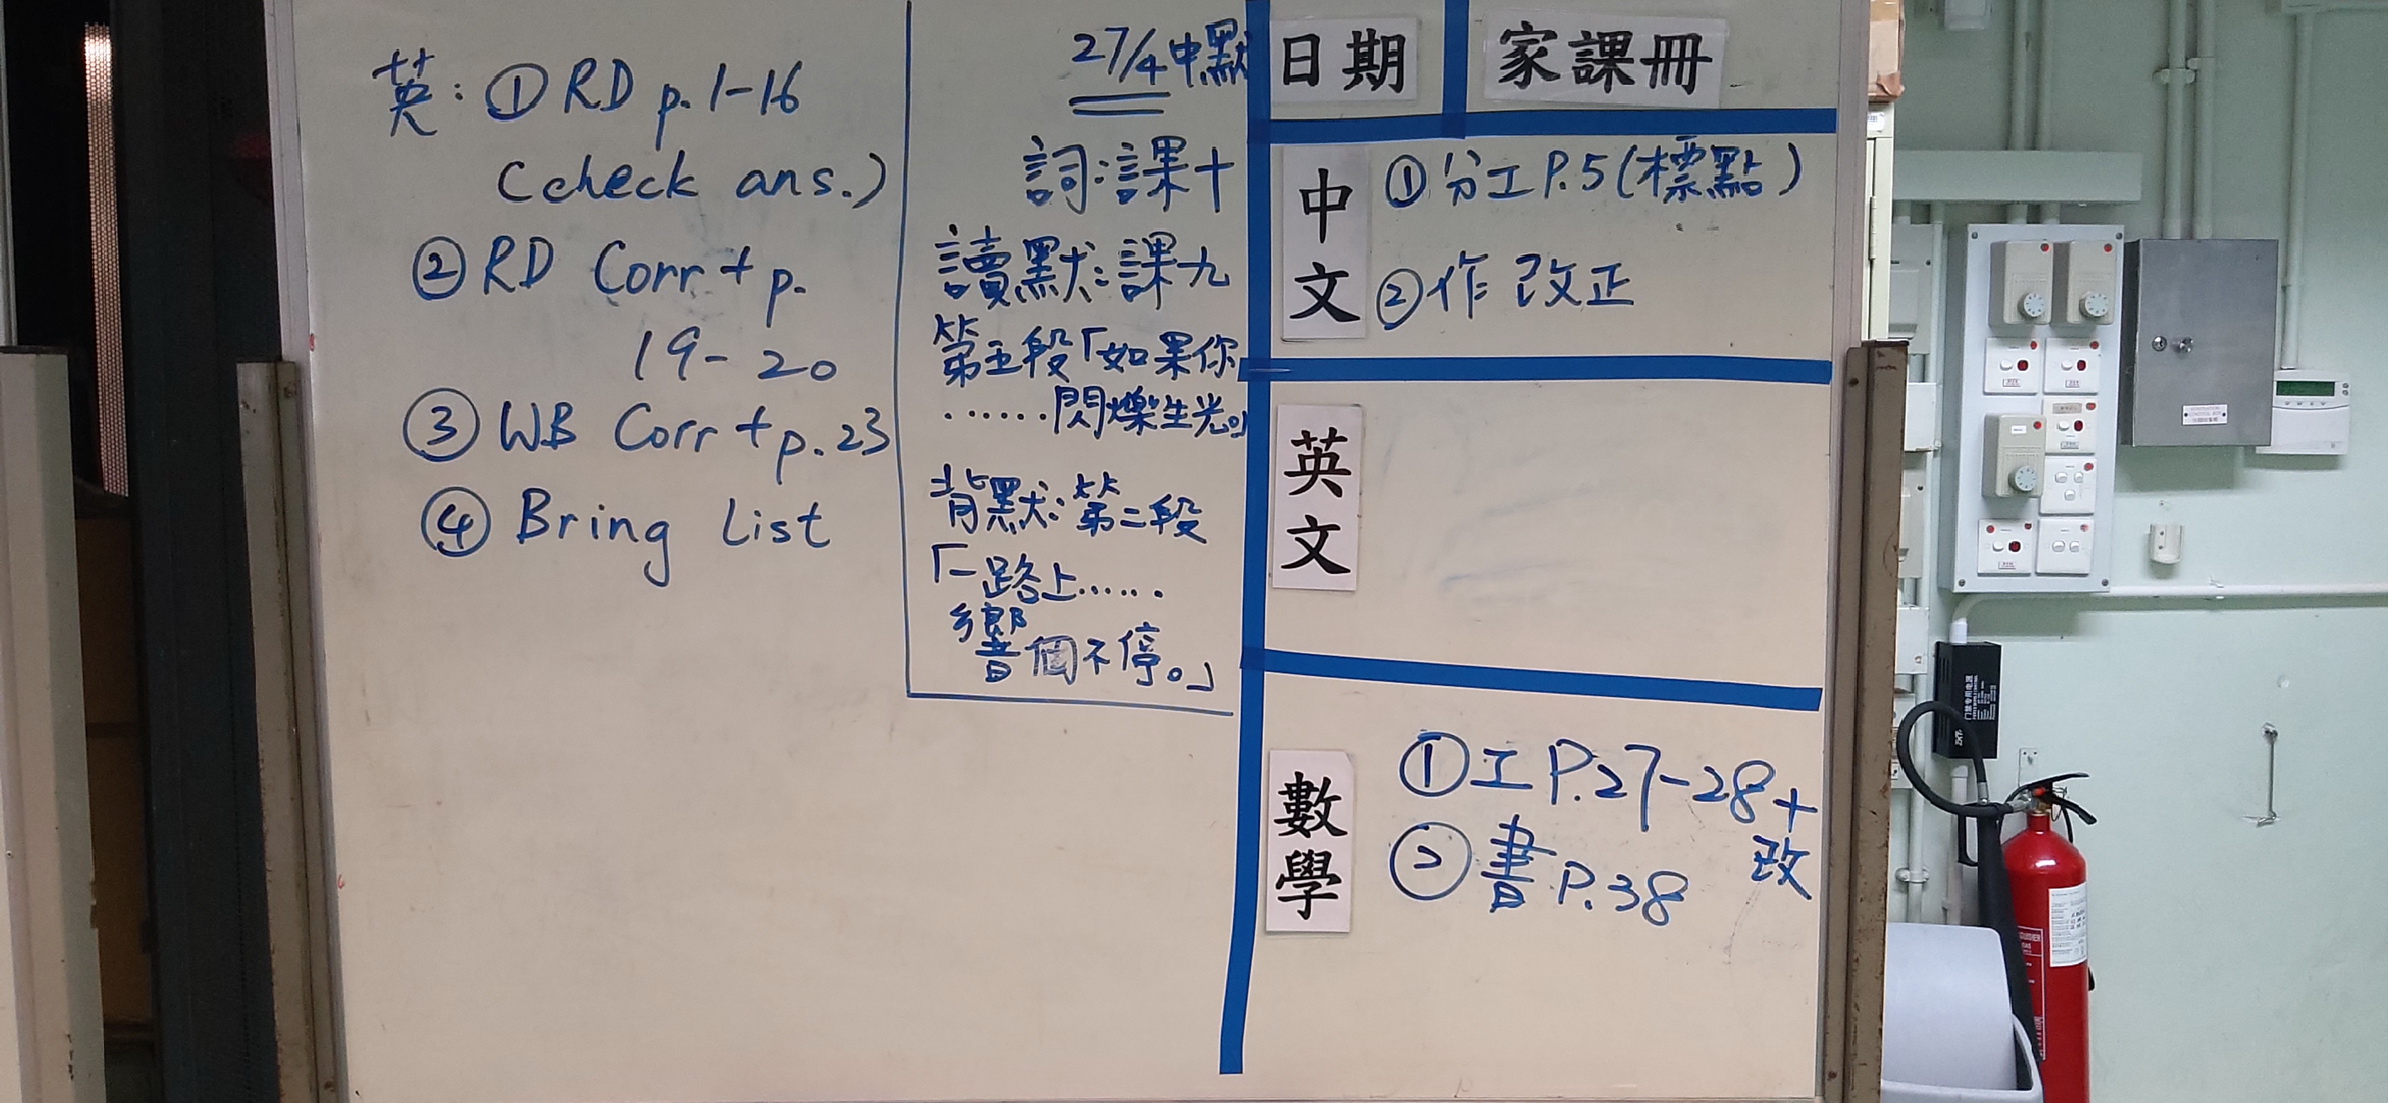 英：① RD p. 1-16
(check ans.)
② RD Corr + p.
19-20
③ WB Corr + p. 23
④ Bring List
27/4 中默
詞：課十
讀默：課九
第五段「如果你
……閃爍生光。」
背默：第二段
「一路上……
響個不停。」
日期
家課冊
中文
① 分工 P.5 (標點)
② 作 改正
英文
數學
① 工 P.27-28 +
改
② 書 P.38